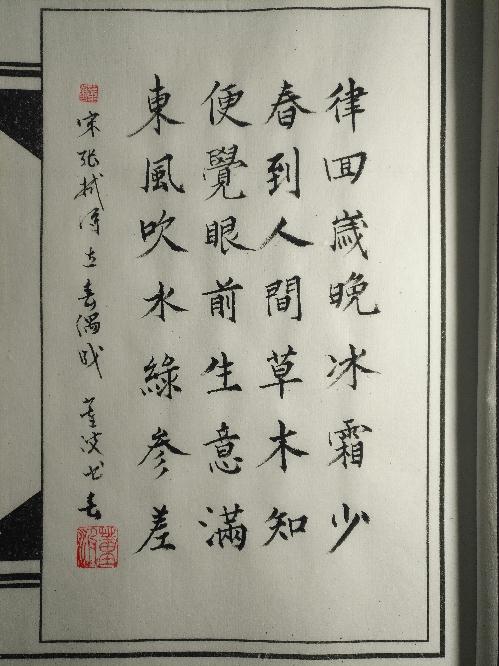 律回歲晚冰霜少
春到人間草木知
便覺眼前生意滿
東風吹水綠參差
宋張栻詩立春偶成 董波書
董波